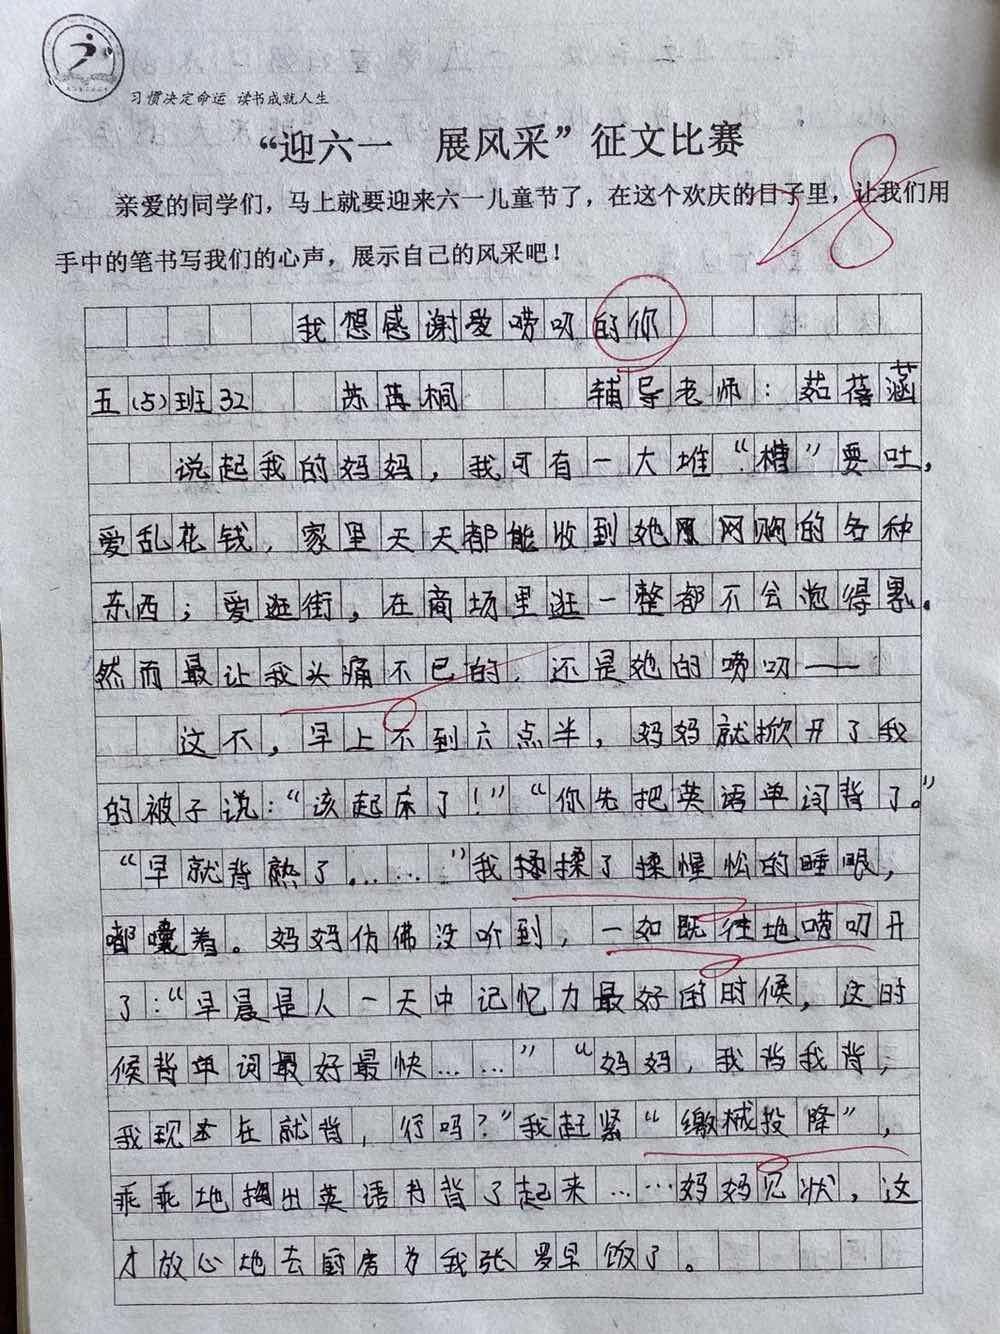 习惯决定命运 读书成就人生
“迎六一 展风采”征文比赛
28
亲爱的同学们，马上就要迎来六一儿童节了，在这个欢庆的日子里，让我们用
手中的笔书写我们的心声，展示自己的风采吧！
我想感谢爱唠叨的你
五(5)班32 苏苒桐 辅导老师：茹蓓涵
说起我的妈妈，我可有一大堆“槽”要吐，
爱乱花钱，家里天天都能收到她网购的各种
东西；爱逛街，在商场里逛一整都不会觉得累。
然而最让我头痛不已的，还是她的唠叨——
这不，早上不到六点半，妈妈就掀开了我
的被子说：“该起床了！”“你先把英语单词背了。”
“早就背熟了……”我揉了揉惺忪的睡眼，
嘟囔着。妈妈仿佛没听到，一如既往地唠叨开
了：“早晨是人一天中记忆力最好的时候，这时
候背单词最好最快……”“妈妈，我背我背，
我现在就背，行吗？”我赶紧“缴械投降”，
乖乖地掏出英语书背了起来……妈妈见状，这
才放心地去厨房为我张罗早饭了。